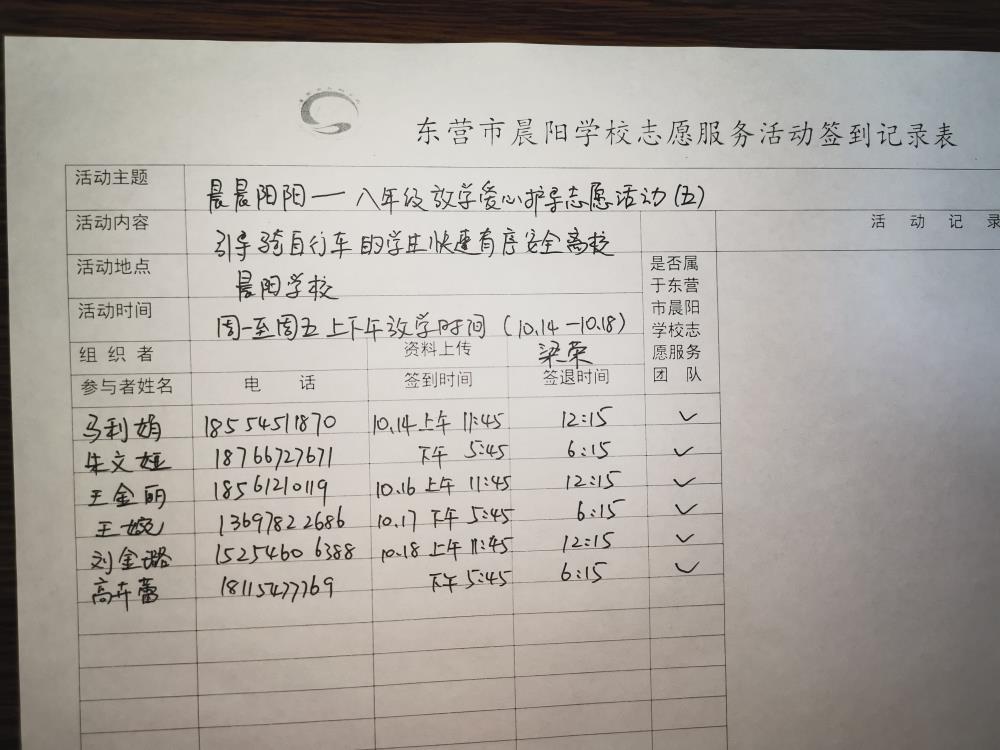 东营市晨阳学校志愿服务活动签到记录表
活动主题 晨晨阳阳一 八年级放学爱心护导志愿活动(五)
活动内容 引导骑自行车的学生快速有序安全离校 活 动 记 录
活动地点 晨阳学校
活动时间 周一至周五上下午放学时间(10.14-10.18)
是否属于东营市晨阳学校志愿服务团 队
组 织 者 资料上传 梁荣
参与者姓名 电 话 签到时间 签退时间
马利娟 18554511870 10.14上午 11:45 12:15 ✓
朱文娅 18766727671 下午 5:45 6:15 ✓
王金丽 18561210119 10.16上午 11:45 12:15 ✓
王婉 13697822686 10.17 下午 5:45 6:15 ✓
刘金璐 15254606388 10.18 上午 11:45 12:15 ✓
高卉蕾 18115477769 下午 5:45 6:15 ✓